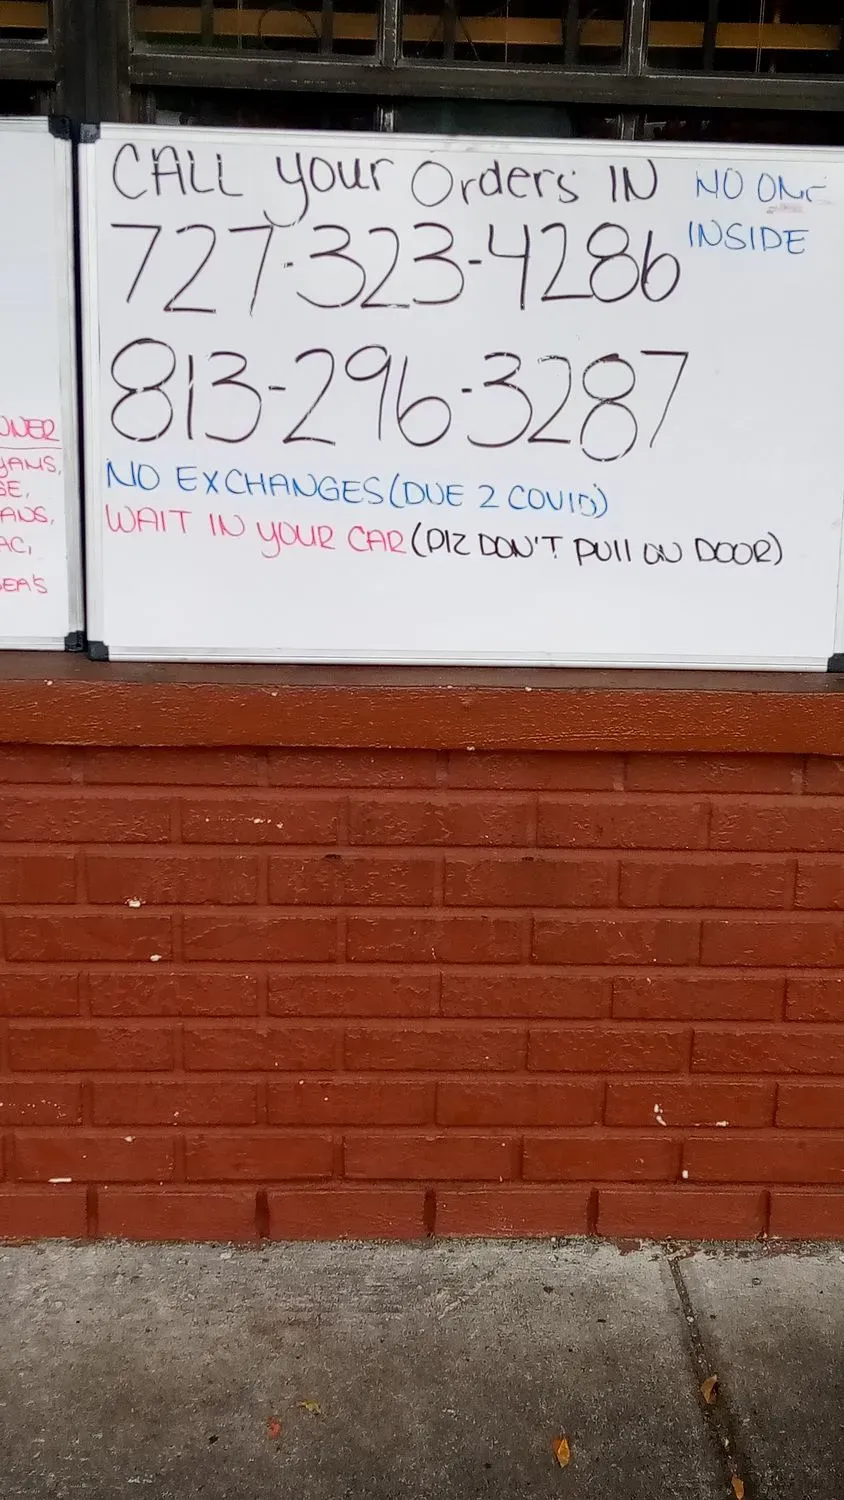 CALL your Orders IN
NO ONE
INSIDE
727-323-4286
813-296-3287
NO EXCHANGES (DUE 2 COVID)
WAIT IN YOUR CAR (PlZ DON'T PUll ON DOOR)
YAMS,